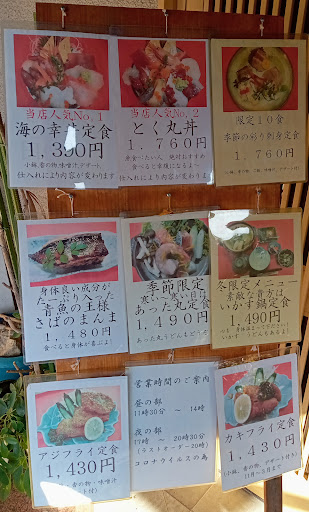 当店人気No.1
海の幸丼定食
1,390円
小鉢、香の物・味噌汁・デザート
仕入れにより内容が変わります
当店人気No.2
とく丸丼
1,760円
仕入れにより内容が変わります
限定10食
季節の彩り刺身定食
1,760円
身体良い成分が
たーっぷり入った
青魚の王様
さばのまんま
1,480円
食べると身体が喜ぶよ!
季節限定
寒い~寒い日は
あった丸定食
1,490円
あった丸うどんもどうぞ
冬限定メニュー
素敵な貴方は
いかす鍋定食
1,490円
アジフライ定食
1,430円
営業時間のご案内
昼の部
11時30分 ~ 14時
夜の部
17時 ~ 20時30分
(ラストオーダー20時)
コロナウイルスの為
カキフライ定食
1,430円
(小鉢、香の物、デザート付き)
11月~3月まで